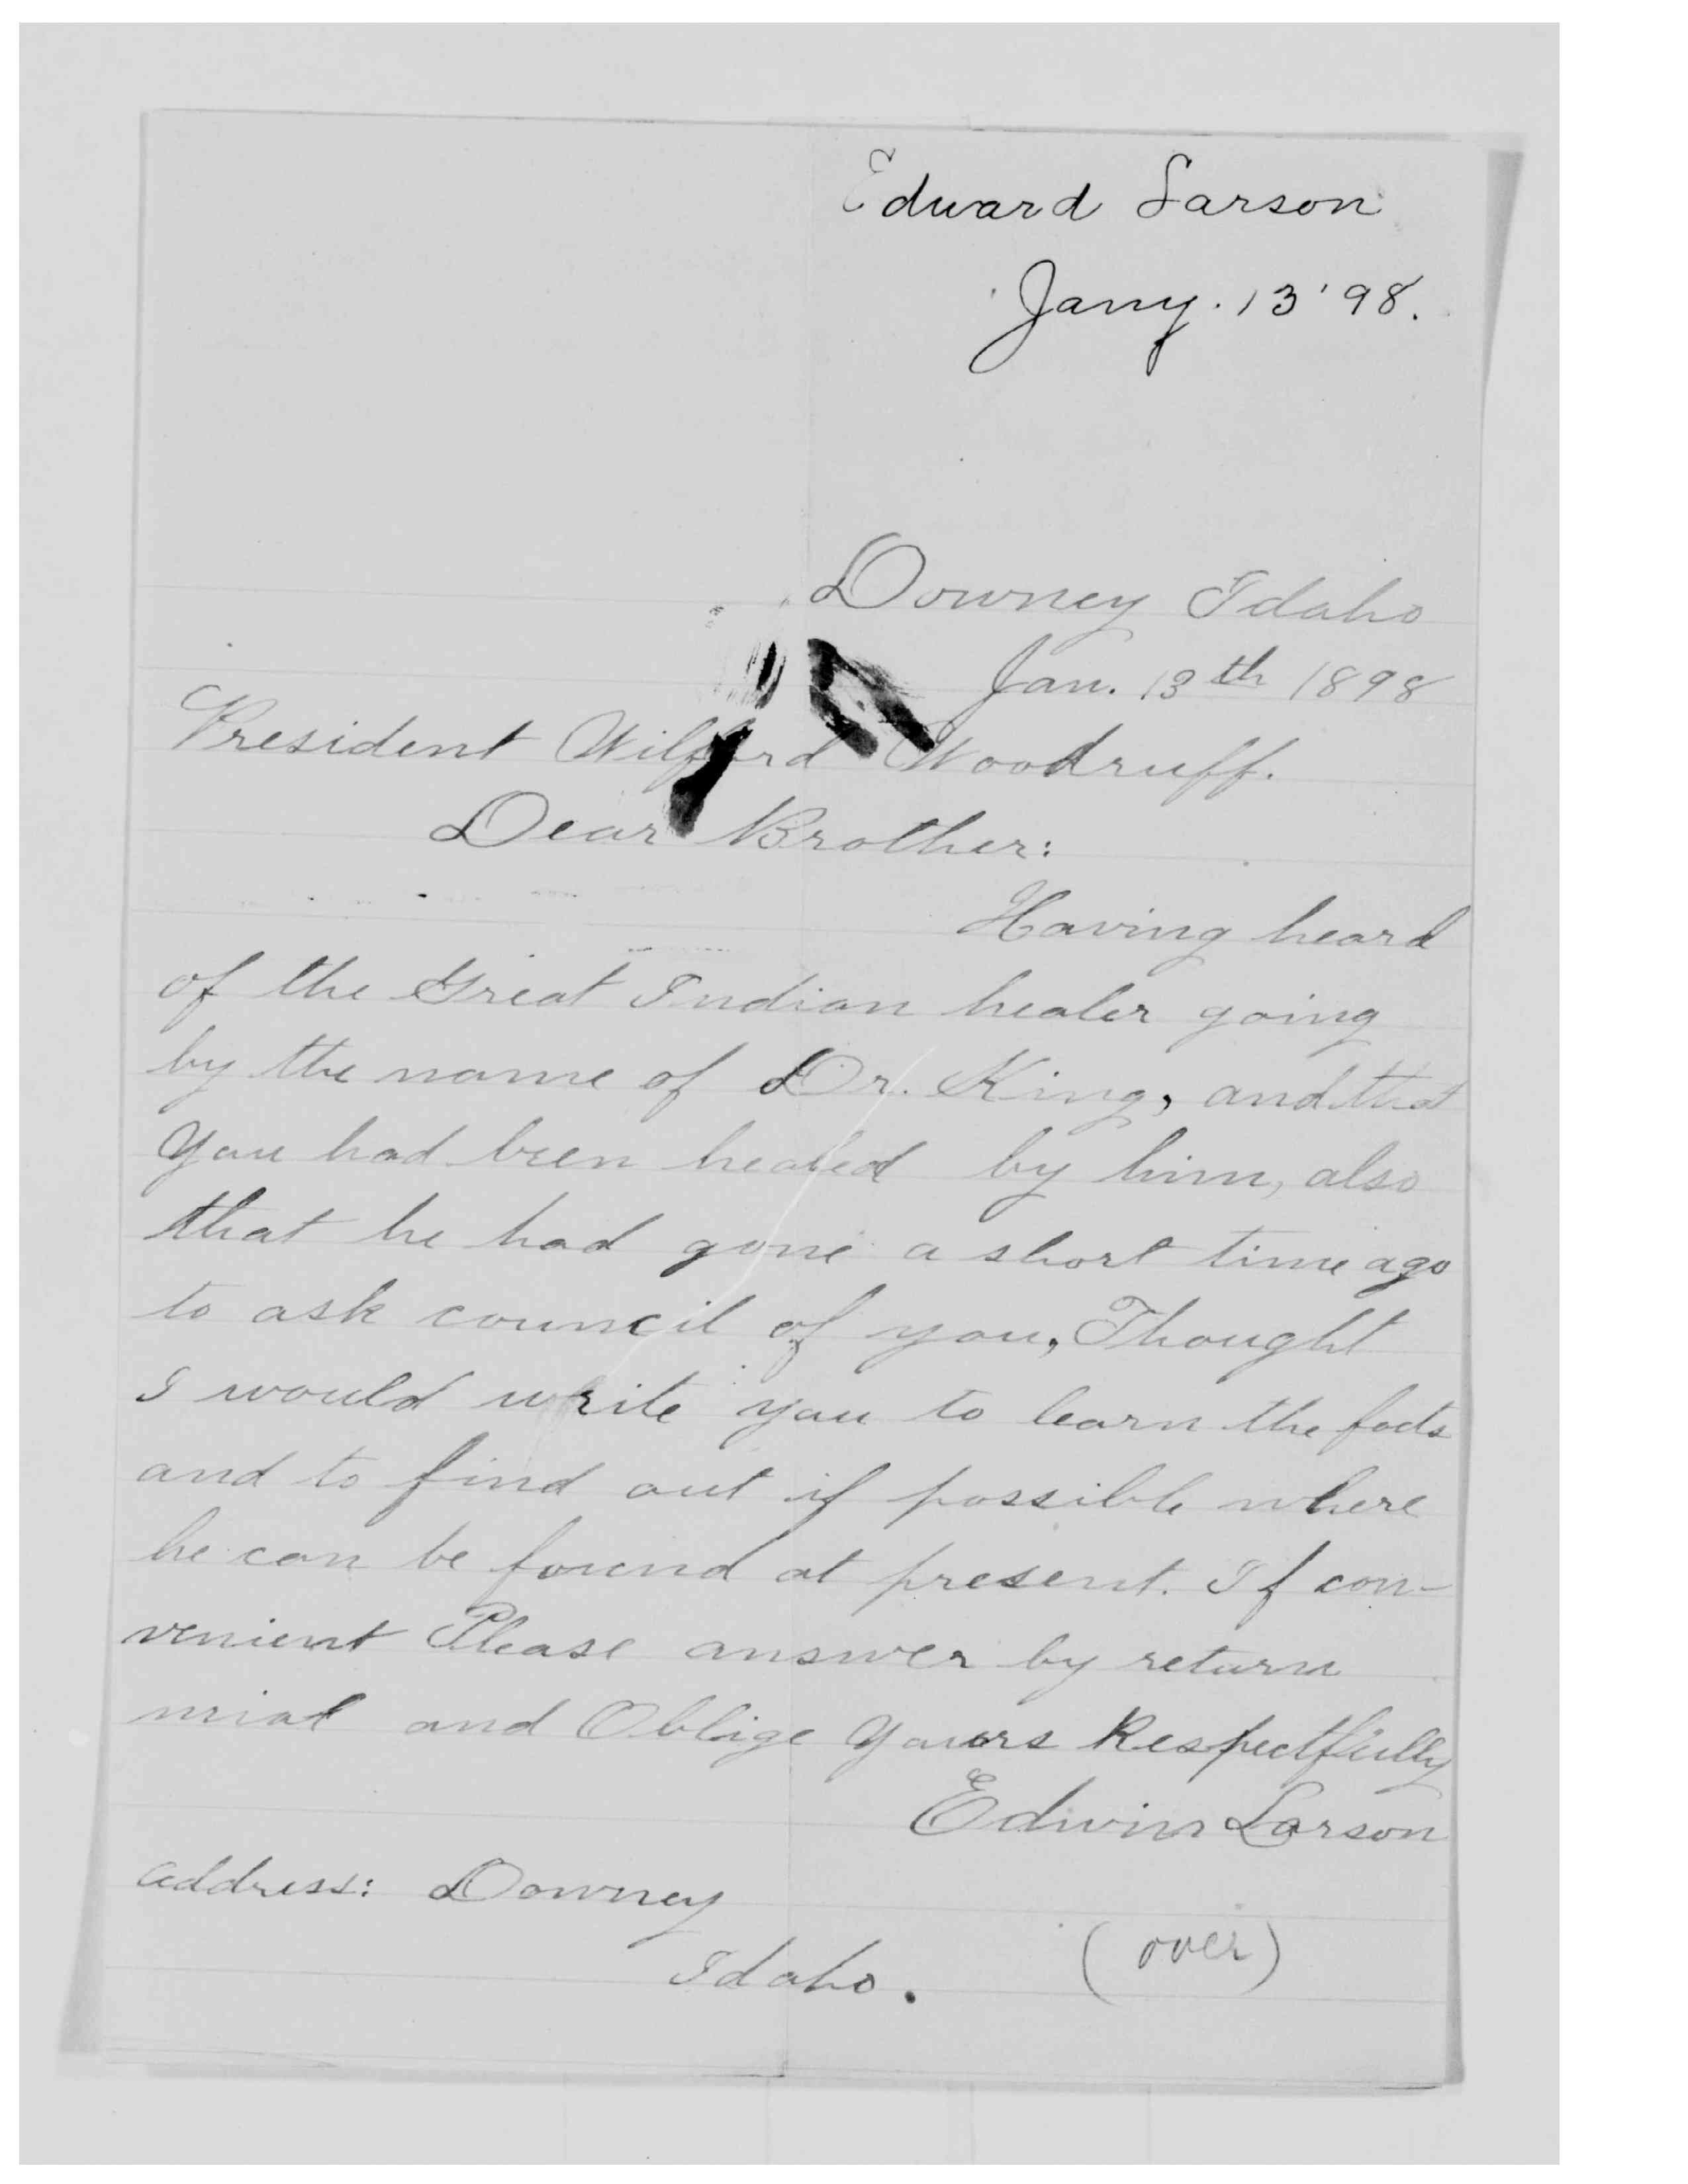 Edward Larson
Jany. 13 '98.
Downey Idaho
Jan. 13th 1898
President Wilford Woodruff.
Dear Brother:
Having heard
of the Great Indian healer going
by the name of Dr. King, and that
you had been healed by him, also
that he had gone a short time ago
to ask council of you, Thought
I would write you to learn the facts
and to find out if possible where
he can be found at present. If con-
venient Please answer by return
mial and Oblige Yours Respectfully
Edwin Larson
address: Downey
Idaho.
(over)